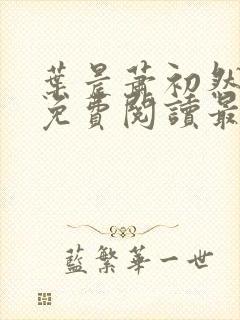 葉晨蕭初然
免費閱讀最
藍繁華一世